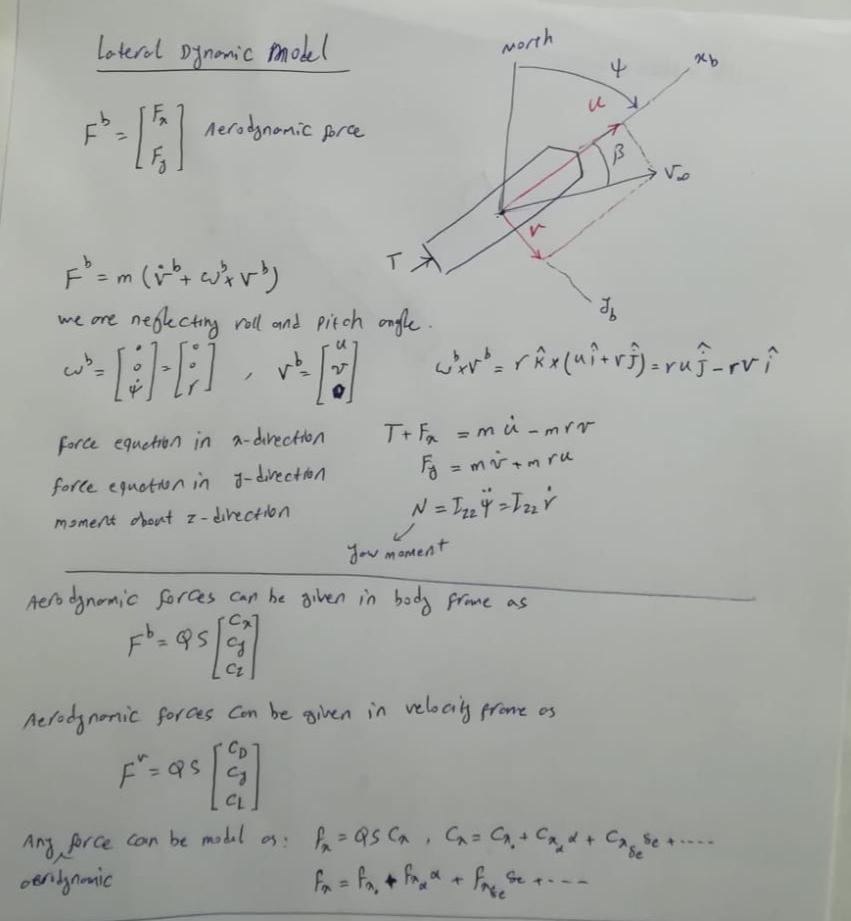 Lateral Dynamic Model
North
ψ
x_b
u
β
V_∞
v
T
y_b
F^b = [F_x F_y] Aerodynamic force
F^b = m (v̇^b + ω^b × v^b)
we are neglecting roll and pitch angle.
ω^b = [0 0 ψ̇] = [0 0 r] , v^b = [u v 0] ω^b × v^b = r k̂ × (u î + v ĵ) = r u ĵ - r v î
force equation in x-direction T + F_x = m u̇ - m r v
force equation in y-direction F_y = m v̇ + m r u
moment about z-direction N = I_zz ψ̈ = I_zz ṙ
yaw moment
Aerodynamic forces can be given in body frame as
F^b = Q S [C_x C_y C_z]
Aerodynamic forces can be given in velocity frame as
F^v = Q S [C_D C_y C_L]
Any force can be model as: f_x = Q S C_x , C_x = C_x. + C_x_α α + C_x_δe δe + ....
aeridynamic f_x = f_x. + f_x_α α + f_x_δe δe + ----